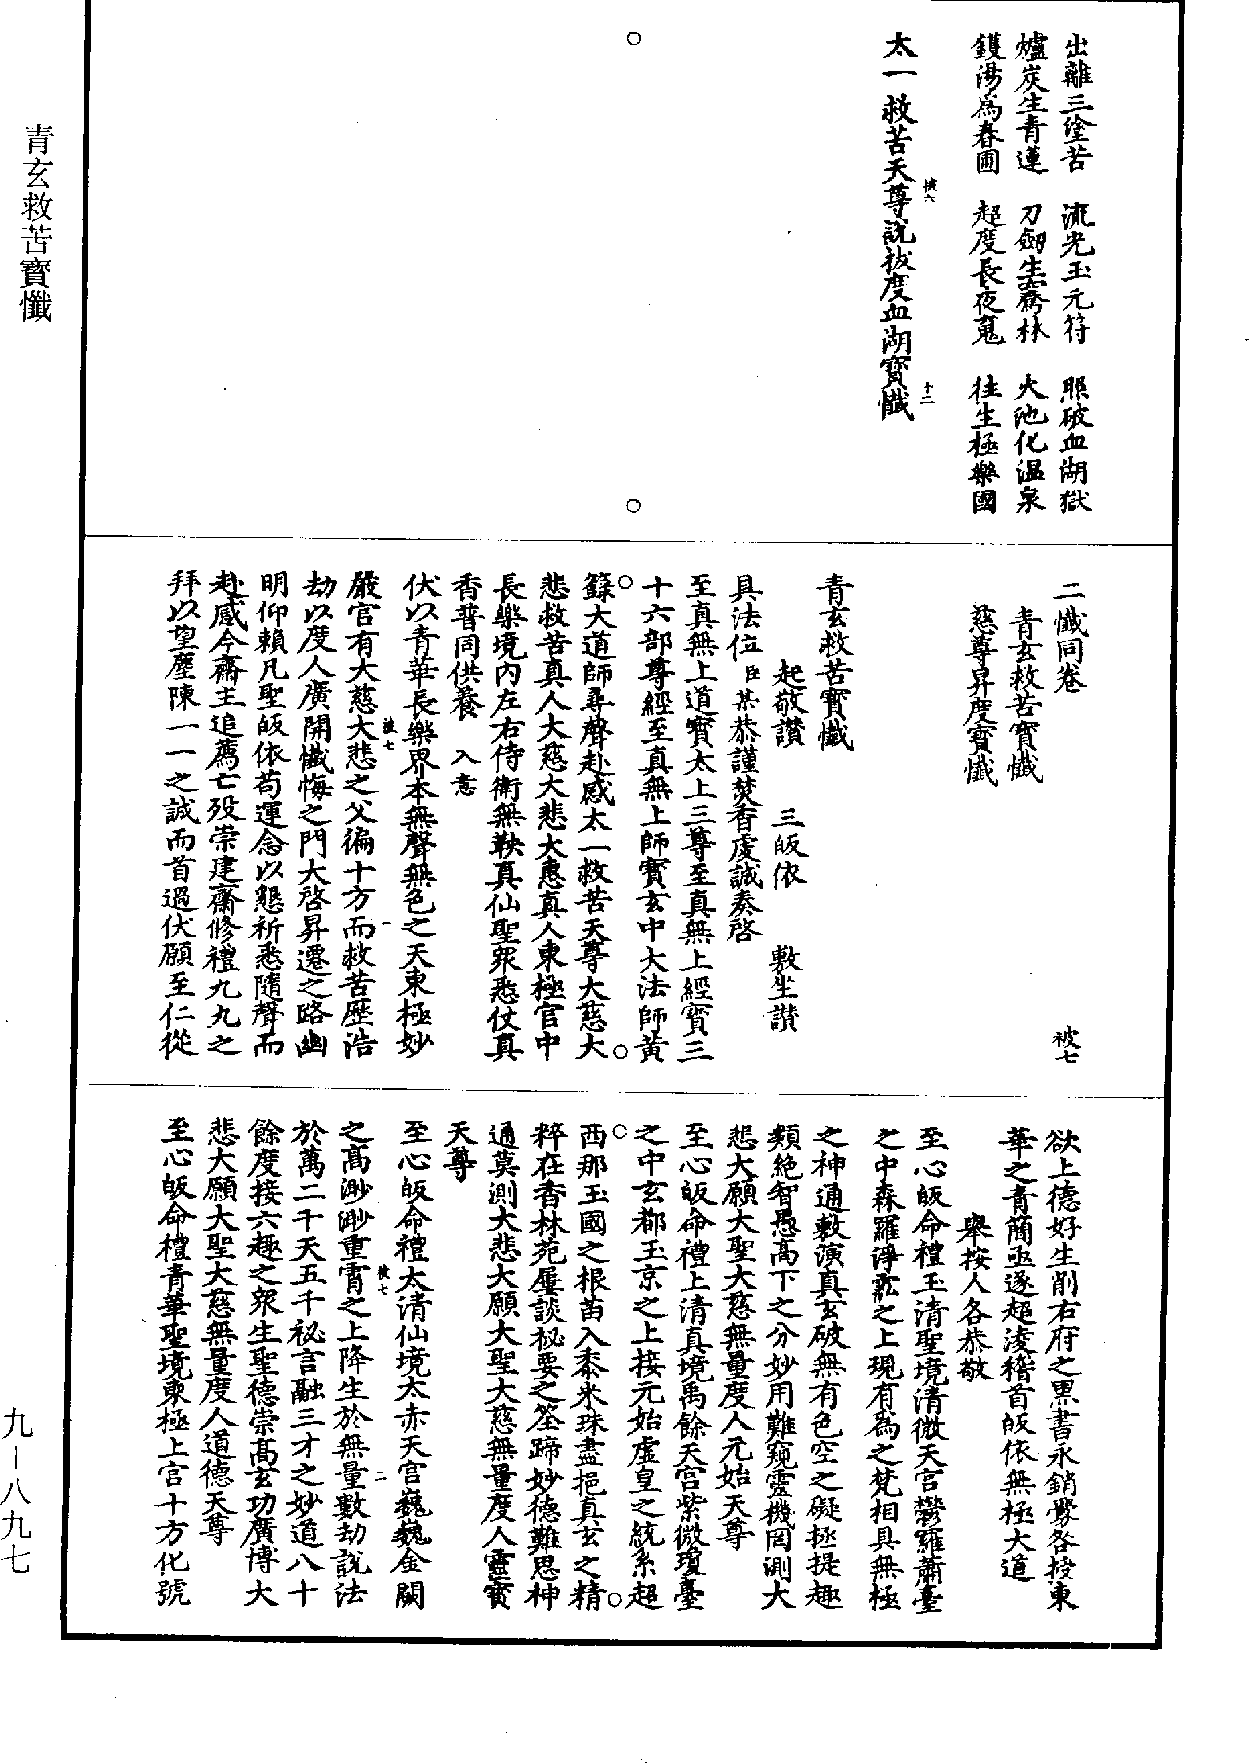 出離三塗苦　流光玉元符　照破血湖獄
爐炭生青蓮　刀劒生騫林　火池化温泉
鑊湯爲春圃　超度長夜䰟　往生極樂國
太一救苦天尊説拔度血湖寶懺
被六
十二
二懺同卷
被七
青玄救苦寶懺
慈尊昇度寶懺
青玄救苦寶懺
起敬讃　三皈依　敷坐讃
具法位臣某恭謹焚香虔誠奏啓
至真無上道寶太上三尊至真無上經寶三
十六部尊經至真無上師寶玄中大法師黄
籙大道師尋聲赴感太一救苦天尊大慈大
悲救苦真人大慈大悲大惠真人東極宫中
長樂境内左右侍衛無鞅真仙聖衆悉仗真
香普同供養　入意
伏以青華長樂界本無聲無色之天東極妙
嚴宫有大慈大悲之父徧十方而救苦歷浩
劫以度人廣開懺悔之門大啓昇遷之路幽
明仰賴凡聖皈依苟運念以懇祈悉隨聲而
赴感今齋主追薦亡殁崇建齋修禮九九之
拜以望塵陳一一之誠而首過伏願至仁從
被七
一
欲上德好生削右府之黒書永銷釁咎授東
華之青簡亟遂超淩稽首皈依無極大道
舉按人各恭敬
至心皈命禮玉清聖境清微天宫欝羅蕭臺
之中森羅淨泓之上現有爲之梵相具無極
之神通敷演真玄破無有色空之礙拯提趣
類絶智愚高下之分妙用難窺靈機罔測大
悲大願大聖大慈無量度人元始天尊
至心皈命禮上清真境禹餘天宫紫微瓊臺
之中玄都玉京之上接元始虚皇之統系超
西那玉國之根苗入黍米珠盡挹真玄之精
粹在香林苑屢談秘要之筌蹄妙德難思神
通莫測大悲大願大聖大慈無量度人靈寶
天尊
至心皈命禮太清仙境太赤天宫巍巍金闕
之高渺渺重霄之上降生於無量數劫説法
於萬二千天五千祕言融三才之妙道八十
餘度接六趣之衆生聖德崇高玄功廣博大
悲大願大聖大慈無量度人道德天尊
至心皈命禮青華聖境東極上宫十方化號
被七
二
青玄救苦寶懺
九—八九七